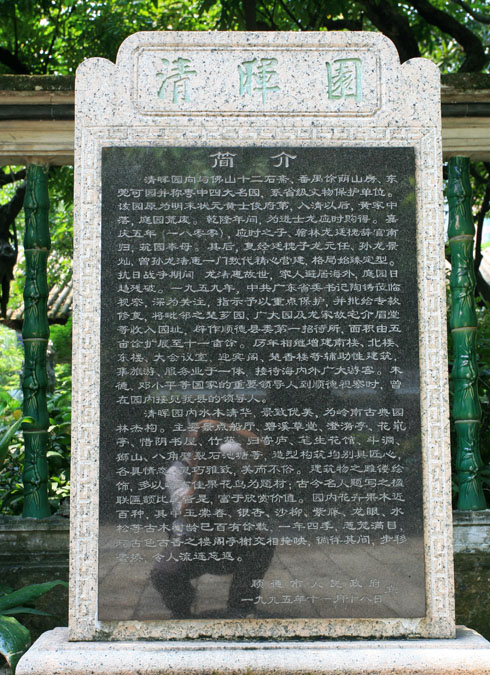 清晖园
简介
清晖园向与佛山十二石斋、番禺馀荫山房、东
莞可园并称粤中四大名园，系省级文物保护单位。
该园原为明末状元黄士俊府第，入清以后，黄家中
落，庭园荒废。乾隆年间，为进士龙应时购得。嘉
庆五年（一八零零），应时之子、翰林龙廷槐辞官南
归，筑园奉母。其后，复经廷槐子龙元任、孙龙景
灿、曾孙龙渚惠一门数代精心营建，格局始臻定型。
抗日战争期间，龙渚惠故世，家人避居海外，庭园日
趋残破。一九五九年，中共广东省委书记陶铸莅临
视察，深为关注，指示予以重点保护，并批给专款
修复，将毗邻之楚芗园、广大园及龙家故宅介眉堂
等收入园址，辟作顺德县委第一招待所，面积由五
亩馀扩展至十一亩馀。历年相继增建南楼、北楼、
东楼、大会议室、迎宾阁、楚香楼等辅助性建筑，
集旅游、服务业于一体，接待海内外广大游客。朱
德、邓小平等国家的重要领导人到顺德视察时，曾
在园内接见我县的领导人。
清晖园内水木清华，景致优美，为岭南古典园
林杰构。主要景点船厅、碧溪草堂、澄漪亭、花㠘
亭、惜阴书屋、竹苑、归寄庐、笔生花馆、斗洞、
狮山、八角壁裂石池塘等，造型构筑均别具匠心，
各具情态，灵巧雅致，美而不俗。建筑物之雕镂绘
饰，多以佳果花鸟为题材；古今名人题写之楹
联匾额比比皆是，富于欣赏价值。园内花卉果木近
百种，其中玉棠春、银杏、沙柳、紫藤、龙眼、水
松等古木树龄已百有馀载，一年四季，葱茏满目，
与古色古香之楼阁亭榭交相掩映，徜徉其间，步移
景换，令人流连忘返。
顺德市人民政府
一九九五年十一月十八日